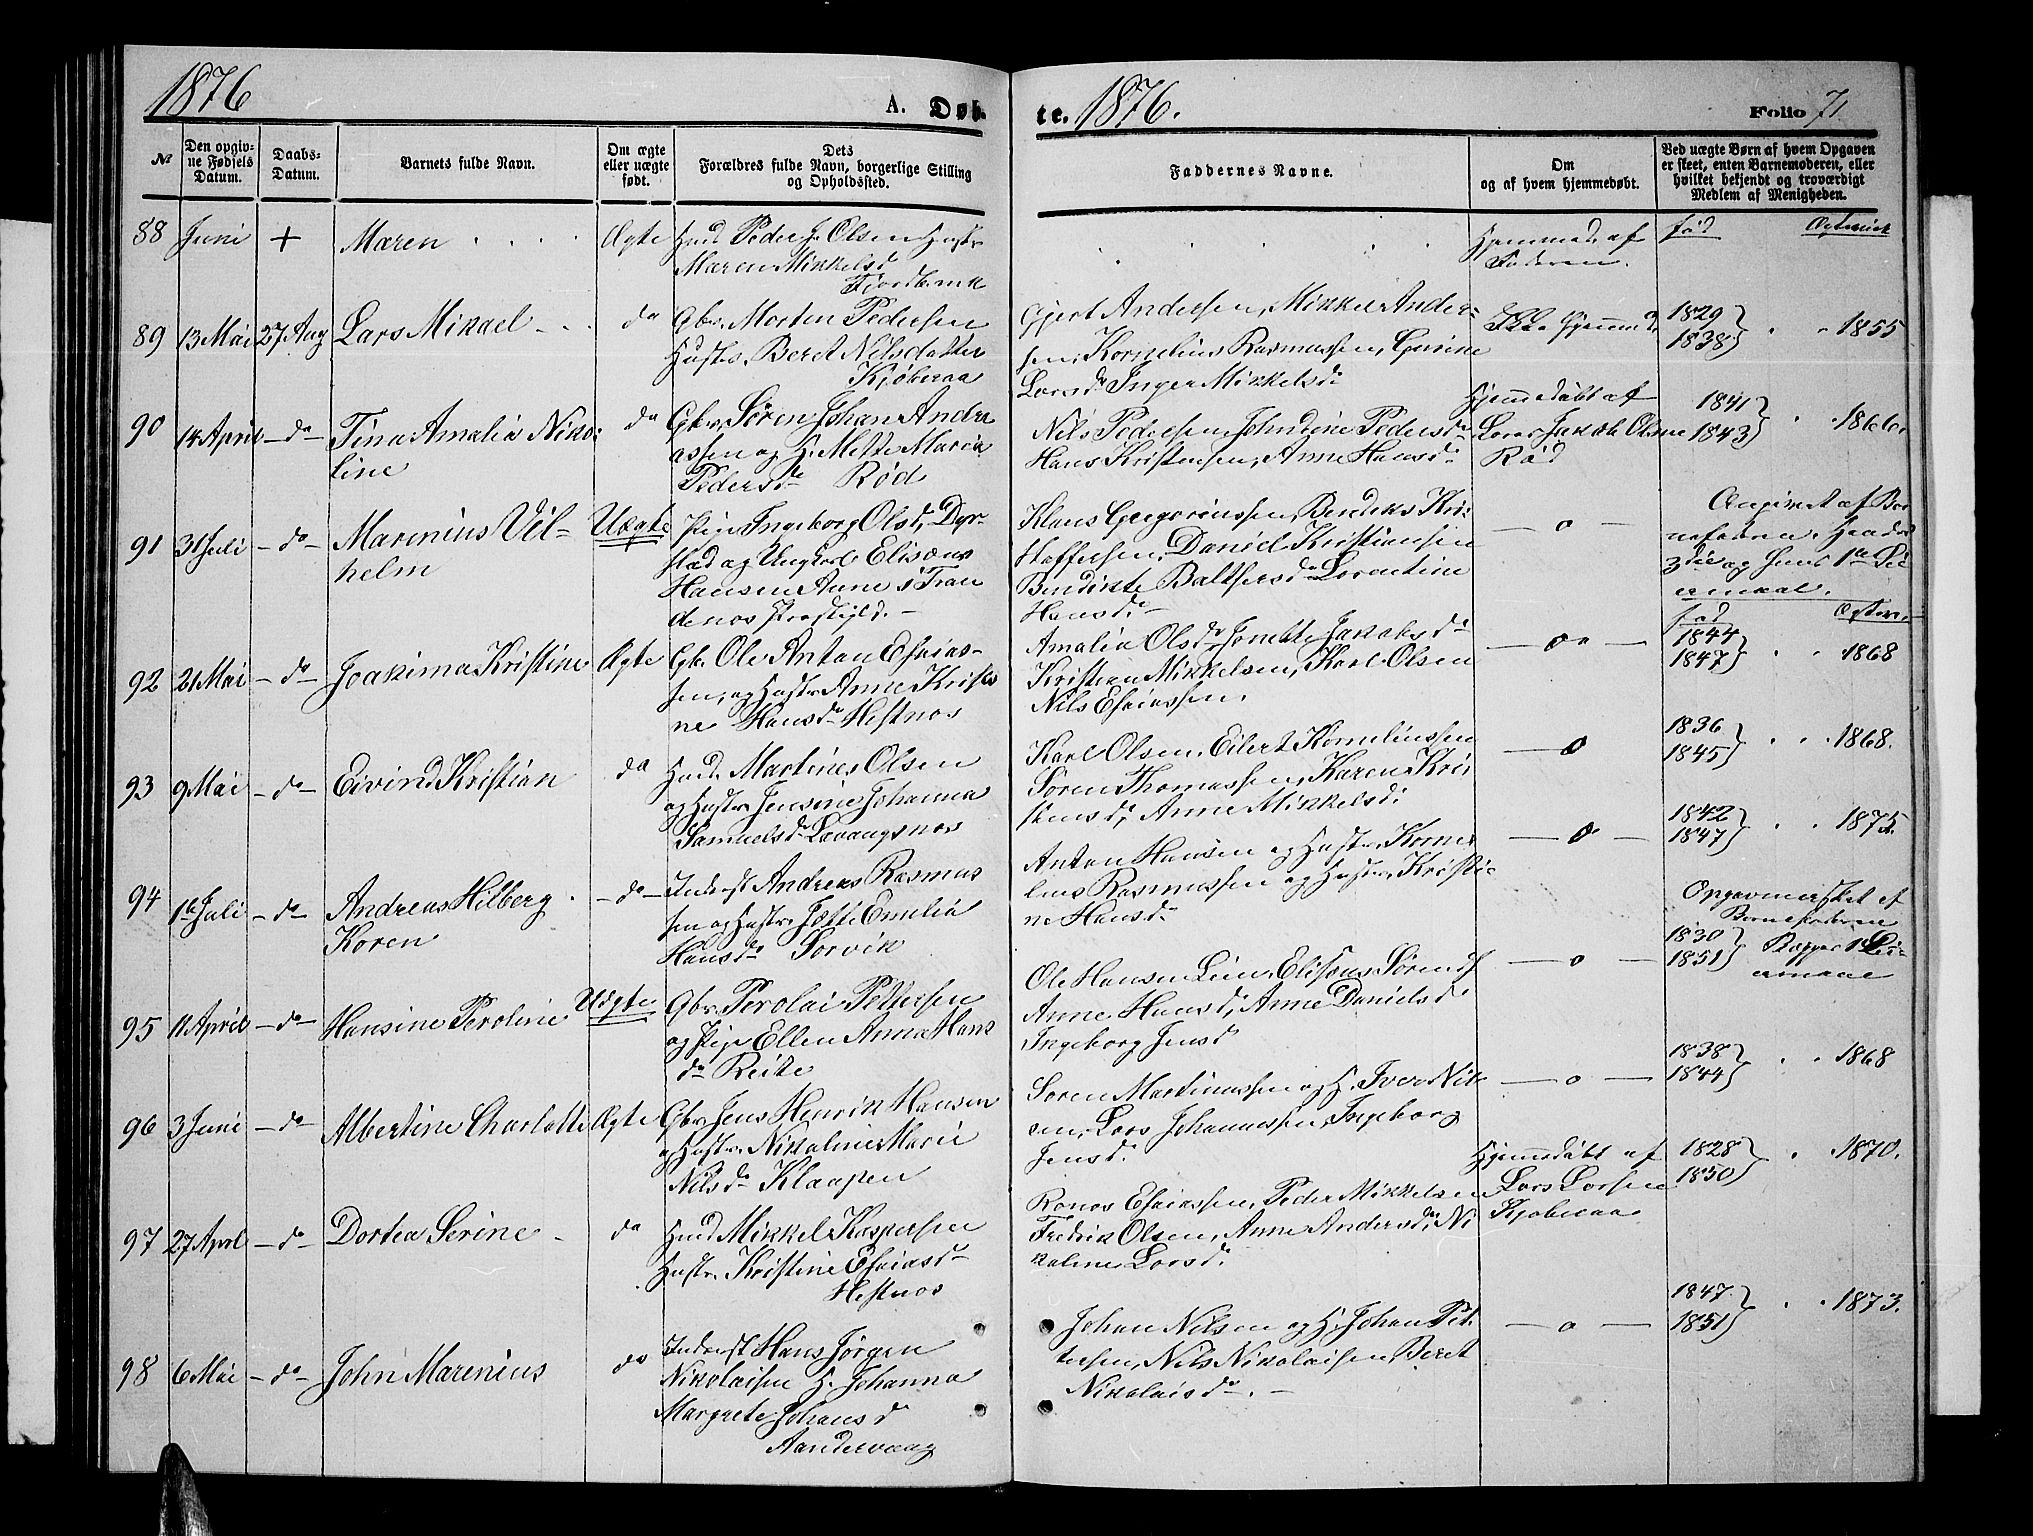 1876
A. Døb-
te. 1876.
Folio 71
№
Den opgiv-
ne Fødsels
Datum.
Daabs-
Datum.
Barnets fulde Navn.
Om ægte
eller uægte
født.
Dets
Forældres fulde Navn, borgerlige Stilling
og Opholdssted.
Faddernes Navne.
Om
og af hvem hjemmedøbt.
Ved uægte Børn af hvem Opgaven
er skeet, enten Barnemoderen, eller
hvilket bekjendt og troværdigt
Medlem af Menigheden.
88 Juni + Maren Ægte
Huusm. Peder J. Olsen Hustr
Maren Mikkelsd
Fjordbunk
Hjemmed. af
Faderen.
fød
89 13 Mai 27 Aug Lars Mikael do
Gbr. Morten Pedersen
Hustr. Beret Nilsdatter
Kjøberaa
Gjert Andersen, Mikkel Ander-
sen, Kornelius Rasmussen, Gurine
Larsdr Inger Mikkelsdr
Ikke Hjemmed.
1829
1838
1855
90 14 April do Tina Amalia Niko-
line
do
Gbr. Søren Johan Andre
assen og H. Mette Maria
Pedersdr Rød
Nils Pedersen, Johndine Pedersdr
Hans Kristensen, Anne Hansdr
Hjemmedøbt af
Lærer Jakob Olsen
Rød
1841
1843
1866
91 31 Juli do Marenius Vil-
helm
Uægte
Pige Ingeborg Olsd, Dyr-
stad og Ungkarl Elisæus
Hansen Anne i Tran
denøs Præstgjld.
Klaus Gregoriussen, Bendiks Kri-
stoffersen, Daniel Kristiansen
Bendikte Baltsersdr Lorentine
Hansdr
o
Angivet af Bar
nefaren. Hendes
3die og hans 1ste Lei
ermaal.
92 21 Mai do Joakima Kristine Ægte
Gbr. Ole Antan Esaias-
sen, og Hustr. Anne Kristi
ne Hansdr Hestnes
Amalia Olsdr Jonette Jakobsdr
Kristian Mikkelsen, Karl Olsen
Nils Esaiassen.
fød
1844
1847
1868
93 9 Mai do Eivind Kristian do
Huusm. Martines Olsen
og Hustr. Jensine Johanna
Samuelsdr Lavangsnes
Karl Olsen, Eilert Korneliussen
Søren Thomassen, Karen Kri-
stensdr, Anne Mikkelsdr
o
1836
1845
1868.
94 1ste Juli do Andreas Hilberg
Koren
do
Inderst Andreas Rasmus
sen og Hustr. Jette Emilia
Hansdr Sørvik
Antan Hansen og Hustr. Korne-
lius Rasmussen og Hustr. Kristi-
ne Hansdr
o
1842
1847
1875.
95 11 April do Hansine Peroline Uægte
Gbr. Perolai Pettersen
og Pige Ellen Anna Hans
dr Reite
Ole Hansen Lien, Elisæus Sørens.
Anne Hansdr, Anne Danielsdr
Ingeborg Jensd
o
Opgaven er sket af
Barnefaderen
1830
1851
Begges 1ste Lei-
ermaal
96 3 Juni do Albertine Charlotte Ægte
Gbr. Jens Henrik Hansen
og Hustr. Nikoline Marie
Nilsdr Klaapen
Søren Martinussen og H. Iver Nil-
sen, Lars Johannessen, Ingeborg
Jensdr
o
1838
1844
1868
97 27 April do Dortea Serine do
Huusm. Mikkel Kaspersen
Hustr. Kristine Esaiasdr
Hestnes
Ronos Esaiassen, Peder Mikkelsen
Fredrik Olsen, Anne Andersdr, Ni
koline Larsdr
Hjemmedøbt af
Lars Larsen
Kjøberaa
1828
1850
1870.
98 6 Mai do John Marenius do
Inderst Hans Jørgen
Nikolaisen H. Johanna
Margrete Johansd
Aandervaag
Johan Nilsen og H. Johan Pet-
tersen, Nils Nikolaisen, Beret
Nikolaisdr
o
1847
1851
1873.